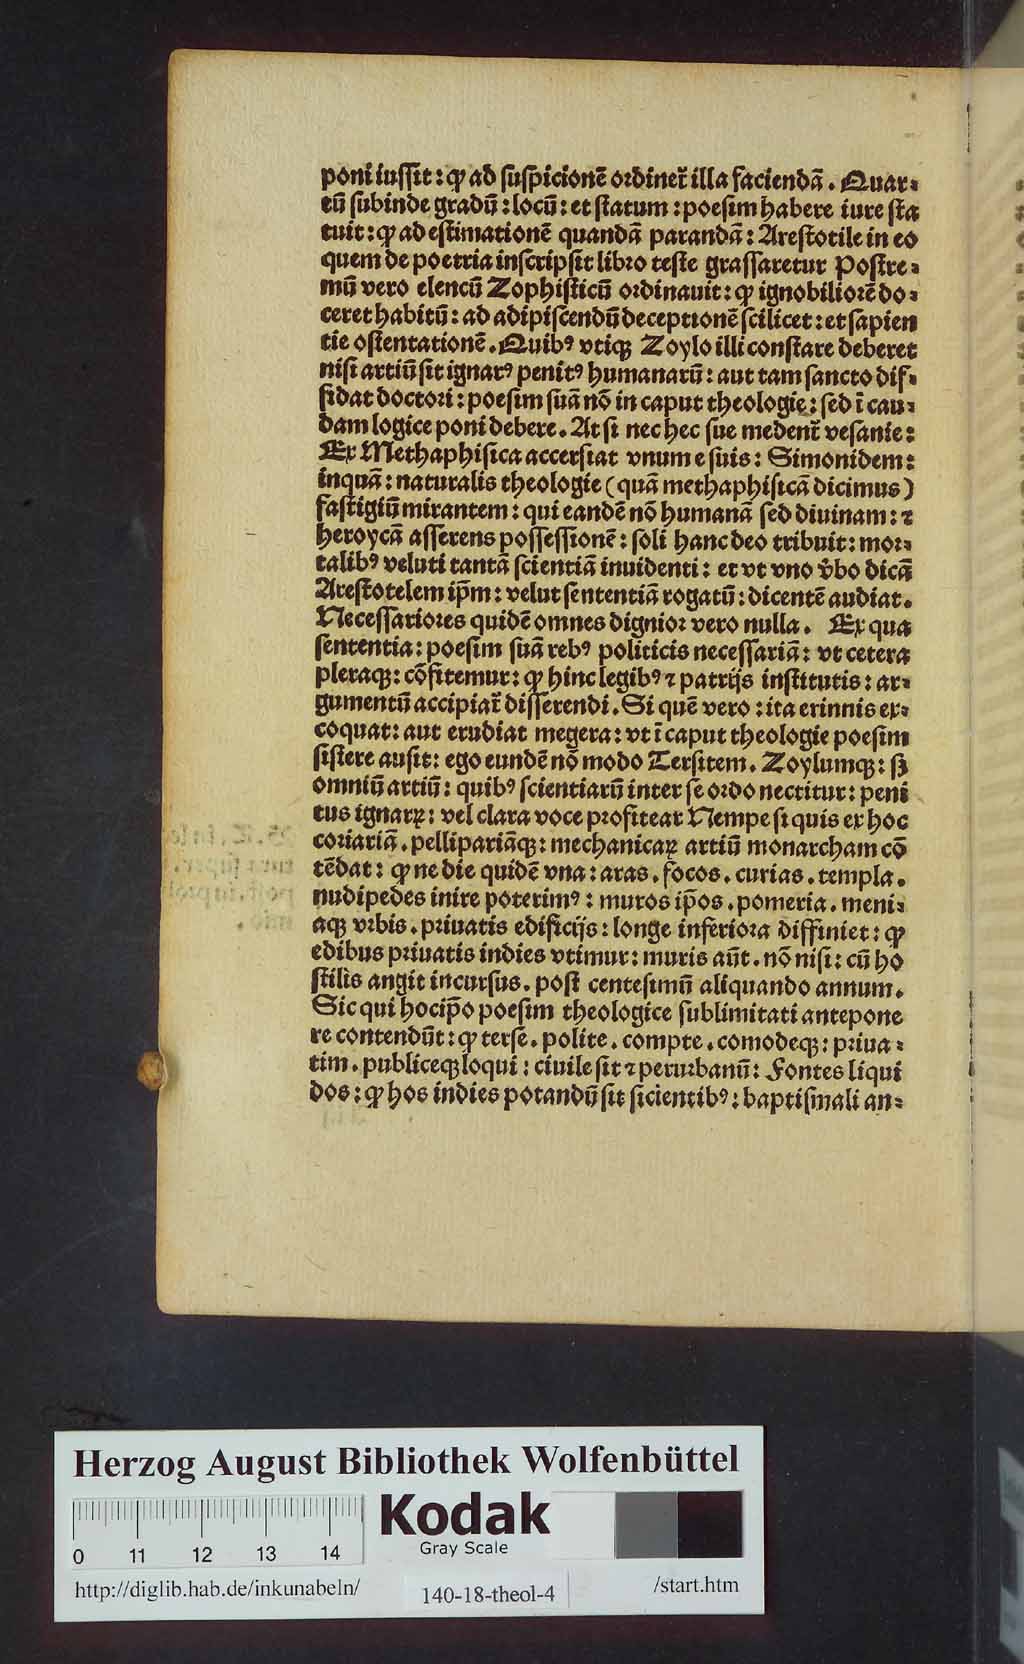 poni iussit: ꝙ ad suspicionē ordinet᷑ illa faciendā. Quar⸗
tū subinde gradū: locū: et statum: poesim habere iure sta
tuit: ꝙ ad estimationē quandā parandā: Arestotile in eo
quem de poetria inscripsit libro teste grassaretur Postre⸗
mū vero elencū Zophisticū ordinauit: ꝙ ignobiliorē do⸗
ceret habitū: ad adipiscendū deceptionē scilicet: et sapien
tie ostentationē. Quibꝰ vtiqꝫ Zoylo illi constare deberet
nisi artiū sit ignarꝰ penitꝰ humanarū: aut tam sancto dif⸗
fidat doctori: poesim suā nō in caput theologie: sed ī cau⸗
dam logice poni debere. At si nec hec sue medent᷑ vesanie:
Ex Methaphisica accersiat vnum e suis: Simonidem:
inquā: naturalis theologie (quā methaphisicā dicimus)
fastigiū mirantem: qui eandē nō humanā sed diuinam: ⁊
heroycā asserens possessionē: soli hanc deo tribuit: mor⸗
talibꝰ veluti tantā scientiā inuidenti: et vt vno v̄bo dicā
Arestotelem ip̄m: velut sententiā rogatū: dicentē audiat.
Necessariores quidē omnes dignior vero nulla. Ex qua
sententia: poesim suā rebꝰ politicis necessariā: vt cetera
pleraqꝫ: cōfitemur: ꝙ hinc legibꝰ ⁊ patrijs institutis: ar⸗
gumentū accipiat᷑ disserendi. Si quē vero: ita erinnis ex⸗
coquat: aut erudiat megera: vt ī caput theologie poesim
sistere ausit: ego eundē nō modo Tersitem. Zoylumqꝫ: sꝫ
omniū artiū: quibꝰ scientiarū inter se ordo nectitur: peni
tus ignarꝝ: vel clara voce profitear Nempe si quis ex hoc
coriariā. pellipariāqꝫ: mechanicaꝝ artiū monarcham cō
tēdat: ꝙ ne die quidē vna: aras. focos. curias. templa.
nudipedes inire poterimꝰ: muros ip̄os. pomeria. meni⸗
aqꝫ vrbis. priuatis edificijs: longe inferiora diffiniet: ꝙ
edibus priuatis indies vtimur: muris aūt. nō nisi: cū ho
stilis angit incursus. post centesimū aliquando annum.
Sic qui hocip̄o poesim theologice sublimitati antepone
re contendūt: ꝙ terse. polite. compte. comodeqꝫ: priua⸗
tim. publiceqꝫ loqui: ciuile sit ⁊ perurbanū: Fontes liqui
dos: ꝙ hos indies potandū sit sicientibꝰ: baptismali an⸗
Herzog August Bibliothek Wolfenbüttel
Kodak
Gray Scale
0 11 12 13 14
http://diglib.hab.de/inkunabeln/
140-18-theol-4
/start.htm